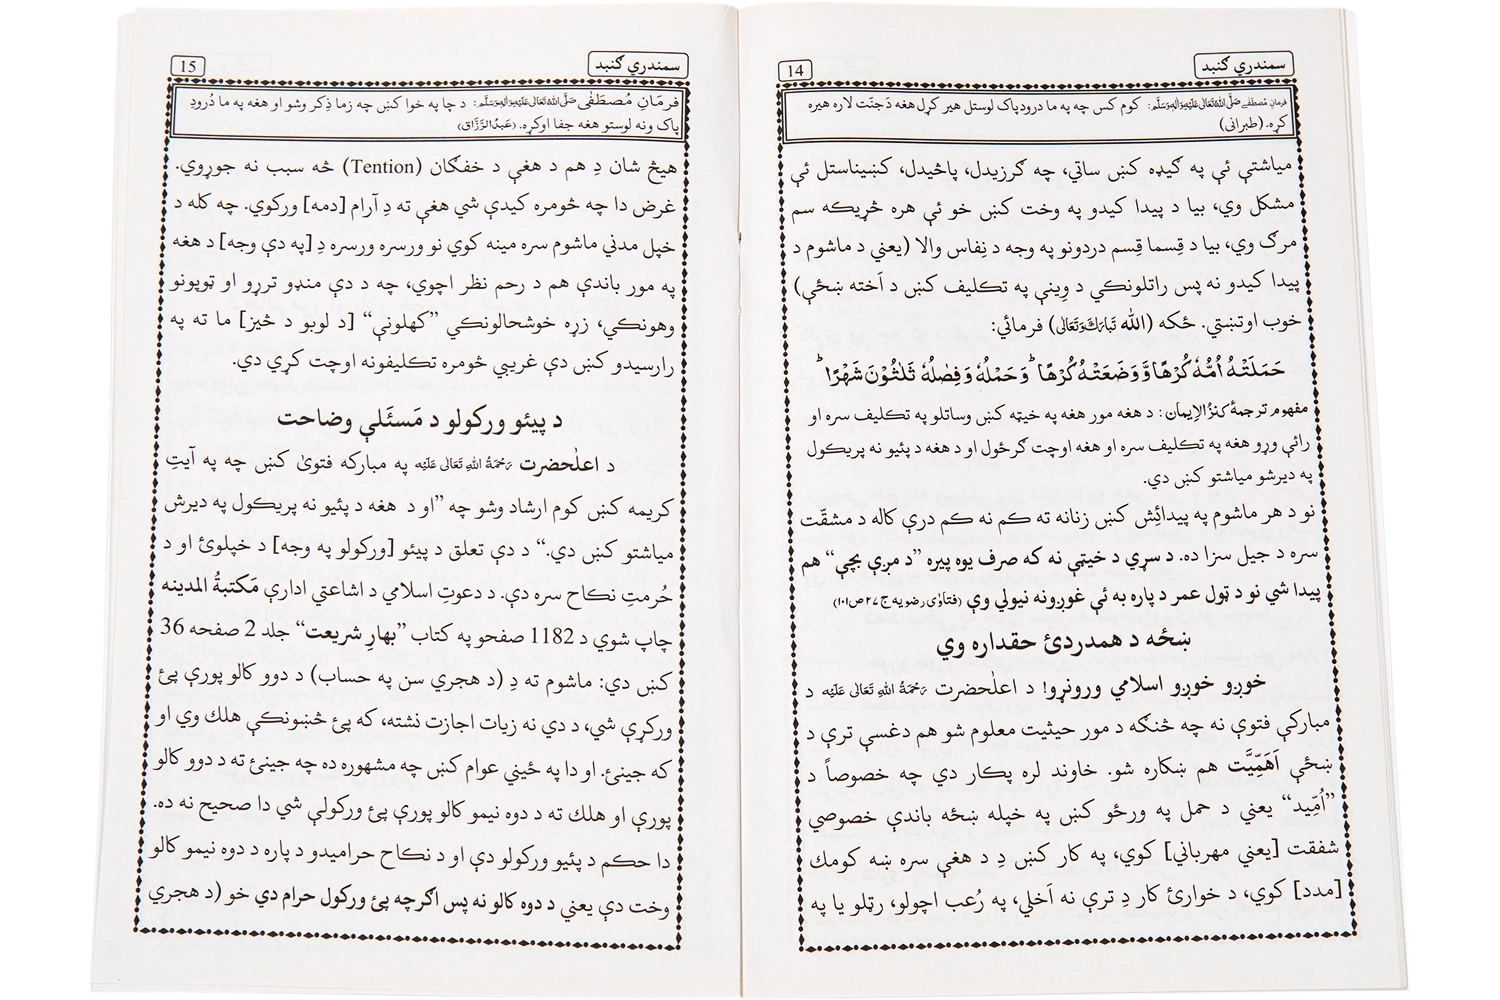 سمندري ګنبد
14
فرمانِ مُصطفٰے صَلَّی اللّٰہُ تَعَالٰی عَلَیْہِ وَاٰلِہٖ وَسَلَّم: کوم کس چه په ما درودِپاک لوستل هیر کړل هغه دَ جنّت لاره هیره
کړه. (طبرانی)
میاشتې ئې په ګیډه کښ ساتي، چه ګرزیدل، پاڅیدل، کښیناستل ئې
مشکل وي، بیا د پیدا کیدو په وخت کښ خو ئې هره څړیکه سم
مرګ وي، بیا د قِسما قِسم دردونو په وجه د نِفاس والا (یعني د ماشوم د
پیدا کیدو نه پس راتلونکي د وِینې په تکلیف کښ د اَخته ښځې)
خوب اوتښتي. ځکه (اللّٰه تَبَارَکَ وَتَعَالٰی) فرمائي:
حَمَلَتْهُ اُمُّهٗ كُرْهًا وَّوَضَعَتْهُ كُرْهًا ؕ وَحَمْلُهٗ وَفِصٰلُهٗ ثَلٰثُوْنَ شَهْرًا ؕ
مفهوم ترجمۀ کنزُ الِایمان: د هغه مور هغه په خیټه کښ وساتلو په تکلیف سره او
رائې وړو هغه په تکلیف سره او هغه اوچت ګرځول او د هغه د پئیو نه پریکول
په دیرشو میاشتو کښ دي.
نو د هر ماشوم په پیدائِش کښ زنانه ته کم نه کم درې کاله د مشقّت
سره د جیل سزا ده. د سړي د خیټې نه که صرف یوه پیره ”د مږې بچې“ هم
پیدا شي نو د ټول عمر د پاره به ئې غوږونه نیولي وي (فتاوٰی رضویه ج ۲۷ ص ۱۰۱)
ښځه د همدردئ حقداره وي
خوږو خوږو اسلامي ورونړو! د اعلٰحضرت رَحْمَةُ اللّٰهِ تَعَالٰی عَلَیْه د
مبارکې فتوې نه چه څنګه د مور حیثیت معلوم شو هم دغسې ترې د
ښځې اَهَمِّیَّت هم ښکاره شو. خاوند لره پکار دي چه خصوصاً د
”اُمِّید“ یعني د حمل په ورځو کښ په خپله ښځه باندې خصوصي
شفقت [یعني مهرباني] کوي، په کار کښ دِ د هغې سره ښه کومك
[مدد] کوي، د خوارئ کار دِ ترې نه اَخلي، په رُعب اچولو، رټلو یا په
سمندري ګنبد
15
فرمَانِ مُصطَفٰی صَلَّی اللّٰہُ تَعَالٰی عَلَیْہِ وَاٰلِہٖ وَسَلَّم: د چا په خوا کښ چه زما ذِکر وشو او هغه په ما دُرودِ
پاك ونه لوستو هغه جفا اوکړه. (عَبدُ الرَّزَّاق)
هیڅ شان دِ هم د هغې د خفګان (Tention) څه سبب نه جوړوي.
غرض دا چه څومره کیدې شي هغې ته دِ آرام [دمه] ورکوي. چه کله د
خپل مدني ماشوم سره مینه کوي نو ورسره ورسره دِ [په دې وجه] د هغه
په مور باندې هم د رحم نظر اچوي، چه د دې منډو تررړو او ټوپونو
وهونکي، زړه خوشحالونکي ”کهلونې“ [د لوبو د څیز] ما ته په
رارسیدو کښ دې غریبې څومره تکلیفونه اوچت کړي دي.
د پیئو ورکولو د مَسئَلې وضاحت
د اعلٰحضرت رَحْمَةُ اللّٰهِ تَعَالٰی عَلَیْه په مبارکه فتوىٰ کښ چه په آیتِ
کریمه کښ کوم ارشاد وشو چه ”او د هغه د پئیو نه پریکول په دیرش
میاشتو کښ دي.“ د دې تعلق د پیئو [ورکولو په وجه] د خپلوئ او د
حُرمتِ نکاح سره دې. د دعوتِ اسلامي د اشاعتي ادارې مَکتبةُ المدینه
چاپ شوي د 1182 صفحو په کتاب ”بهارِ شریعت“ جلد 2 صفحه 36
کښ دي: ماشوم ته دِ (د هجري سن په حساب) د دوو کالو پورې پئ
ورکړې شي، د دې نه زیات اجازت نشته، که پئ څښونکې هلك وي او
که جینئ. او دا په ځینې عوام کښ چه مشهوره ده چه جینئ ته د دوو کالو
پورې او هلك ته د دوه نیمو کالو پورې پئ ورکولې شي دا صحیح نه ده.
دا حکم د پئیو ورکولو دې او د نکاح حرامیدو د پاره د دوه نیمو کالو
وخت دې یعني د دوه کالو نه پس اګرچه پئ ورکول حرام دي خو (د هجري